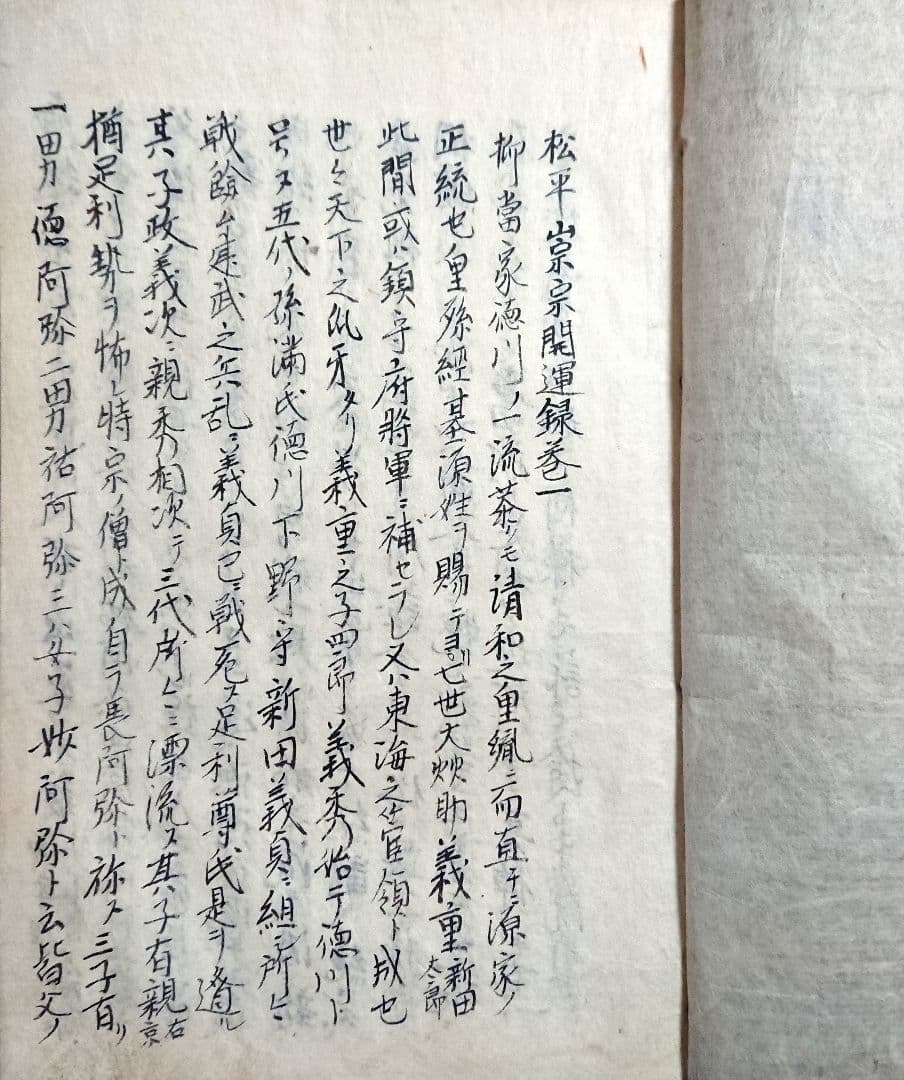 松平崇宗開運録巻一
抑當家徳川ノ一流忝クモ清和之皇胤ニ而直チニ源家ノ
正統也皇孫經基源姓ヲ賜テヨリ七世大炊助義重新田太郎
此間或ハ鎮守府將軍ニ補セラレ又ハ東海之菅領ト成也
世々天下之爪牙タリ義重之子四郎義秀始テ徳川ト
号ス五代ノ孫満氏徳川下野守新田義貞ニ組シ所々ニ
戦険ム建武之兵乱ニ義貞已ニ戦死ス足利尊氏是ヲ
其子政義次ニ親秀相次テ三代所々ニ漂流ス其子有親右京
猶足利勢ヲ怖レ時宗ノ僧ト成自ラ長阿弥ト称ス三子有リ
一男徳阿弥二男祐阿弥三ハ女子妙阿弥ト云皆父ノ